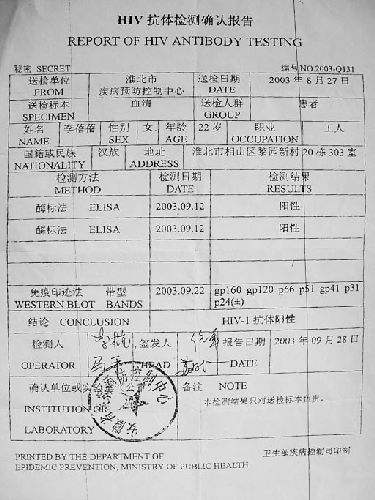 HIV 抗体检测确认报告
REPORT OF HIV ANTIBODY TESTING
秘密 SECRET 编号NO.2003-Q431
送检单位 淮北市 送检日期 2003 年 8 月 27 日
FROM 疾病预防控制中心 DATE
送检标本 血清 送检人群 患者
SPECIMEN GROUP
姓名 李 性别 女 年龄 22 岁 职业 工人
NAME SEX AGE OCCUPATION
国籍或民族 汉族 地址 淮北市相山区黎苑新村 20 栋 303 室
NATIONALITY ADDRESS
检测方法 检测日期 检测结果
METHOD DATE RESULTS
酶标法 ELISA 2003.09.12 阳性
酶标法 ELISA 2003.09.12 阳性
免疫印迹法 带型 2003.09.22 gp160 gp120 p66 p51 gp41 p31
WESTERN BLOT BANDS p24(±)
结论 CONCLUSION HIV-1 抗体阳性
检测人 签发人 报告日期 2003 年 09 月 28 日
OPERATOR HEAD DATE
确认单位或实验 备注 NOTE
INSTITUTION OR 本检测结果只对送检标本负责。
LABORATORY
PRINTED BY THE DEPARTMENT OF 卫生部疾病控制司印制
EPIDEMIC PREVENTION, MINISTRY OF PUBLIC HEALTH